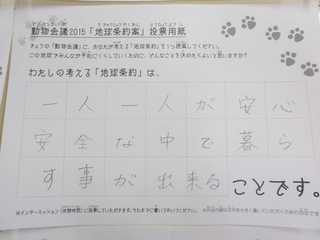 動物会議2015「地球条約案」投票用紙
きょうの「動物会議」に、あなたが考える「地球条約」を1つ提案してください。
この地球でみんなが平和にくらしていくために、どんなことを決めたらよいと思いますか?
わたしの考える「地球条約」は、
一人一人が安心
安全な中で暮ら
す事が出来る ことです。